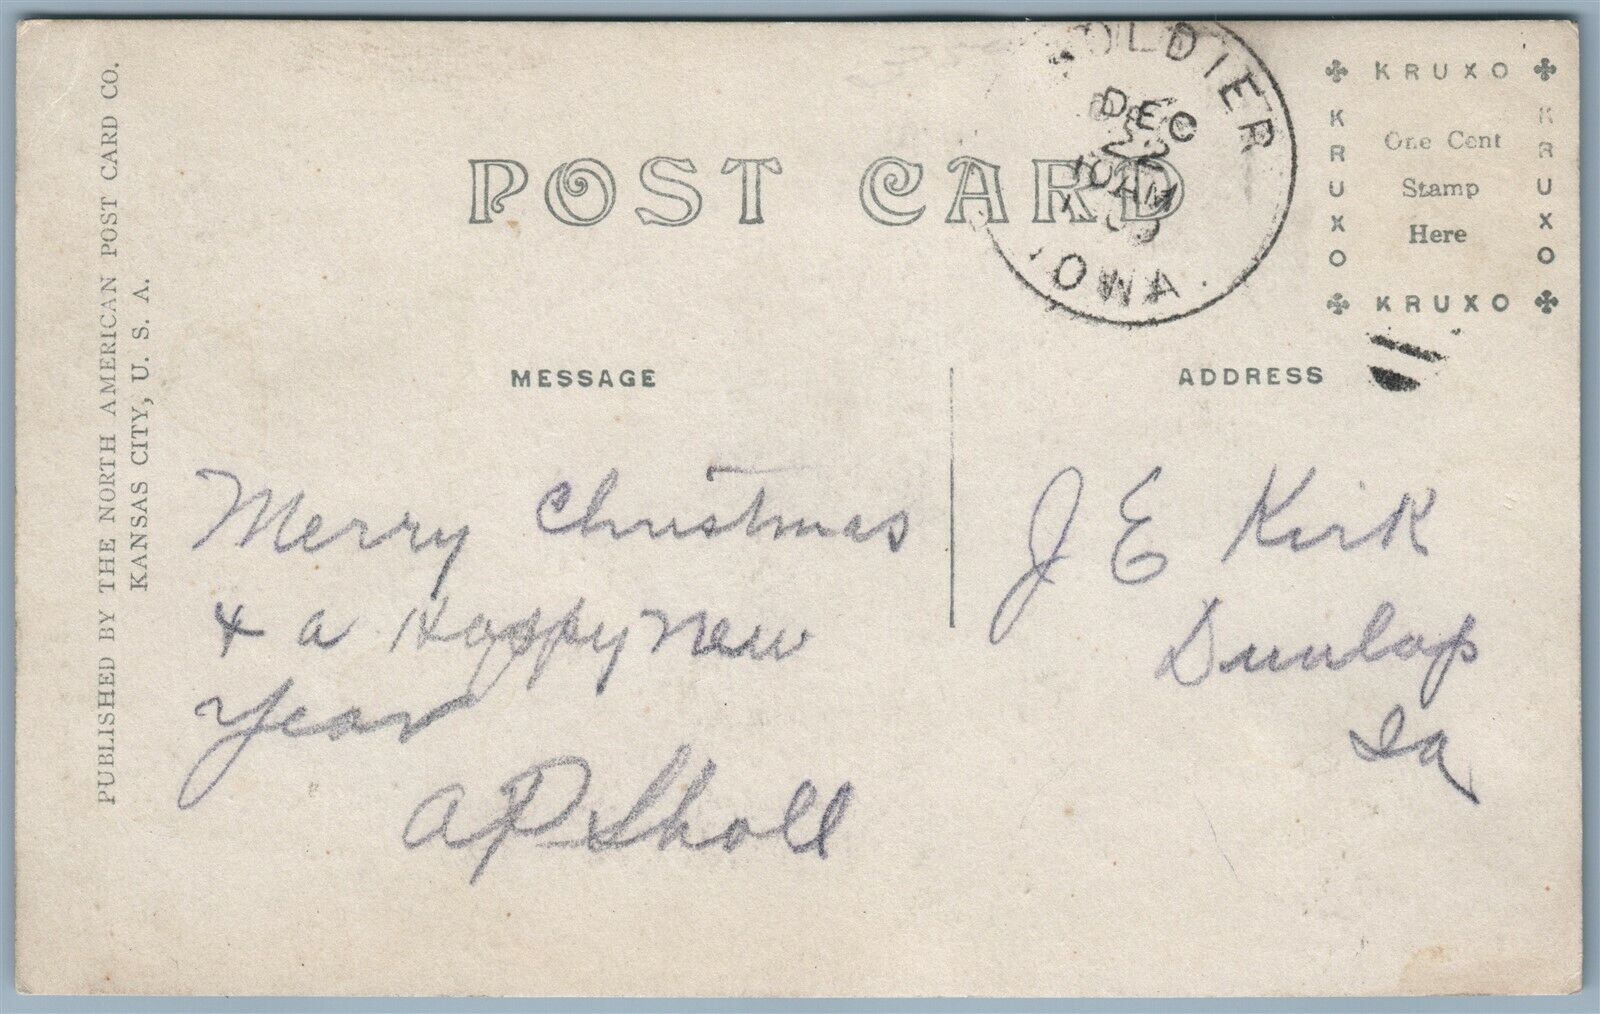 PUBLISHED BY THE NORTH AMERICAN POST CARD CO.
KANSAS CITY, U. S. A.
POST CARD
SOLDIER
DEC
22
10AM
IOWA.
KRUXO
KRUXO
One Cent
Stamp
Here
KRUXO
KRUXO
MESSAGE
ADDRESS
Merry Christmas
& a Happy New
Year
A P Sholl
J E Kirk
Dunlap
Ia